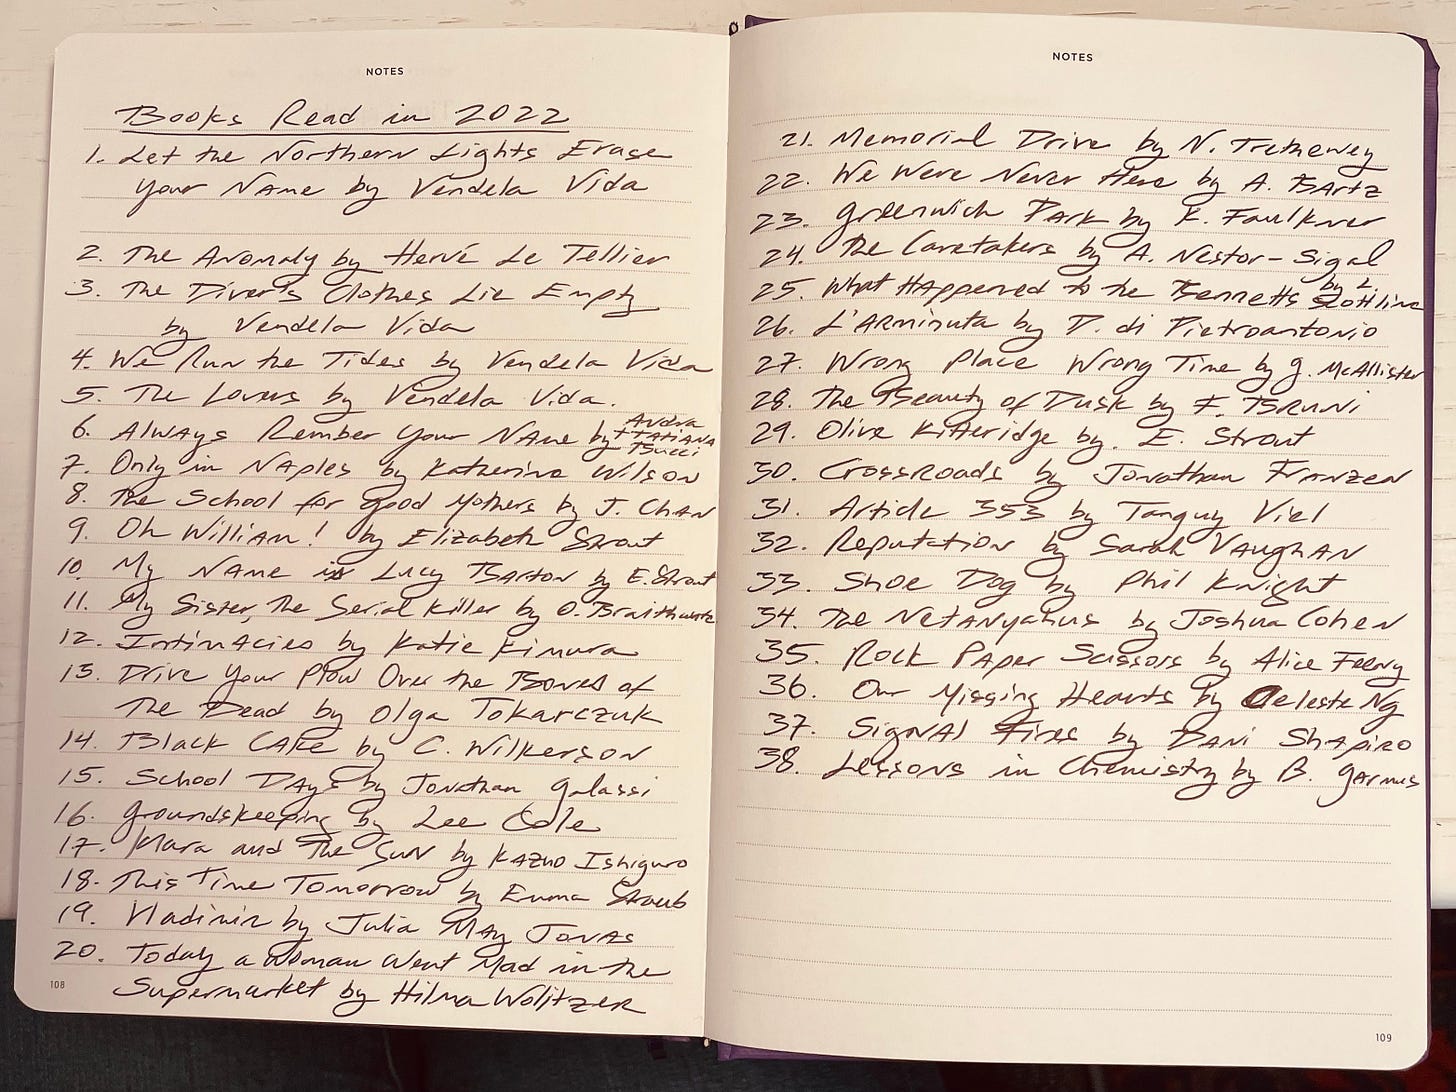 NOTES
Books Read in 2022
1. Let the Northern Lights Erase
Your Name by Vendela Vida
2. The Anomaly by Hervé Le Tellier
3. The Diver's Clothes Lie Empty
by Vendela Vida
4. We Run the Tides by Vendela Vida
5. The Lovers by Vendela Vida.
6. Always Rember Your Name by Andra
+ Tatiana
Bucci
7. Only in Naples by Katherine Wilson
8. The School for Good Mothers by J. Chan
9. Oh William! by Elizabeth Strout
10. My Name is Lucy Barton by E. Strout
11. My Sister, The Serial Killer by O. Braithwaite
12. Intimacies by Katie Kimura
13. Drive Your Plow Over the Bones of
The Dead by Olga Tokarczuk
14. Black Cake by C. Wilkerson
15. School Days by Jonathan Galassi
16. Groundskeeping by Lee Cole
17. Klara and The Sun by Kazuo Ishiguro
18. This Time Tomorrow by Emma Straub
19. Vladimir by Julia May Jonas
20. Today a Woman Went Mad in the
Supermarket by Hilma Wolitzer
108
NOTES
21. Memorial Drive by N. Trethewey
22. We Were Never Here by A. Bartz
23. Greenwich Park by K. Faulkner
24. The Caretakers by A. Nestor-Sigal
25. What Happened to the Bennetts by L.
Scottline
26. L'Arminuta by D. di Pietroantonio
27. Wrong Place Wrong Time by G. McAllister
28. The Beauty of Dusk by F. Bruni
29. Olive Kitteridge by. E. Strout
30. Crossroads by Jonathan Franzen
31. Article 353 by Tanguy Viel
32. Reputation by Sarah Vaughan
33. Shoe Dog by Phil Knight
34. The Netanyahus by Joshua Cohen
35. Rock Paper Scissors by Alice Feeny
36. Our Missing Hearts by Celeste Ng
37. Signal Fires by Dani Shapiro
38. Lessons in Chemistry by B. Garmus
109